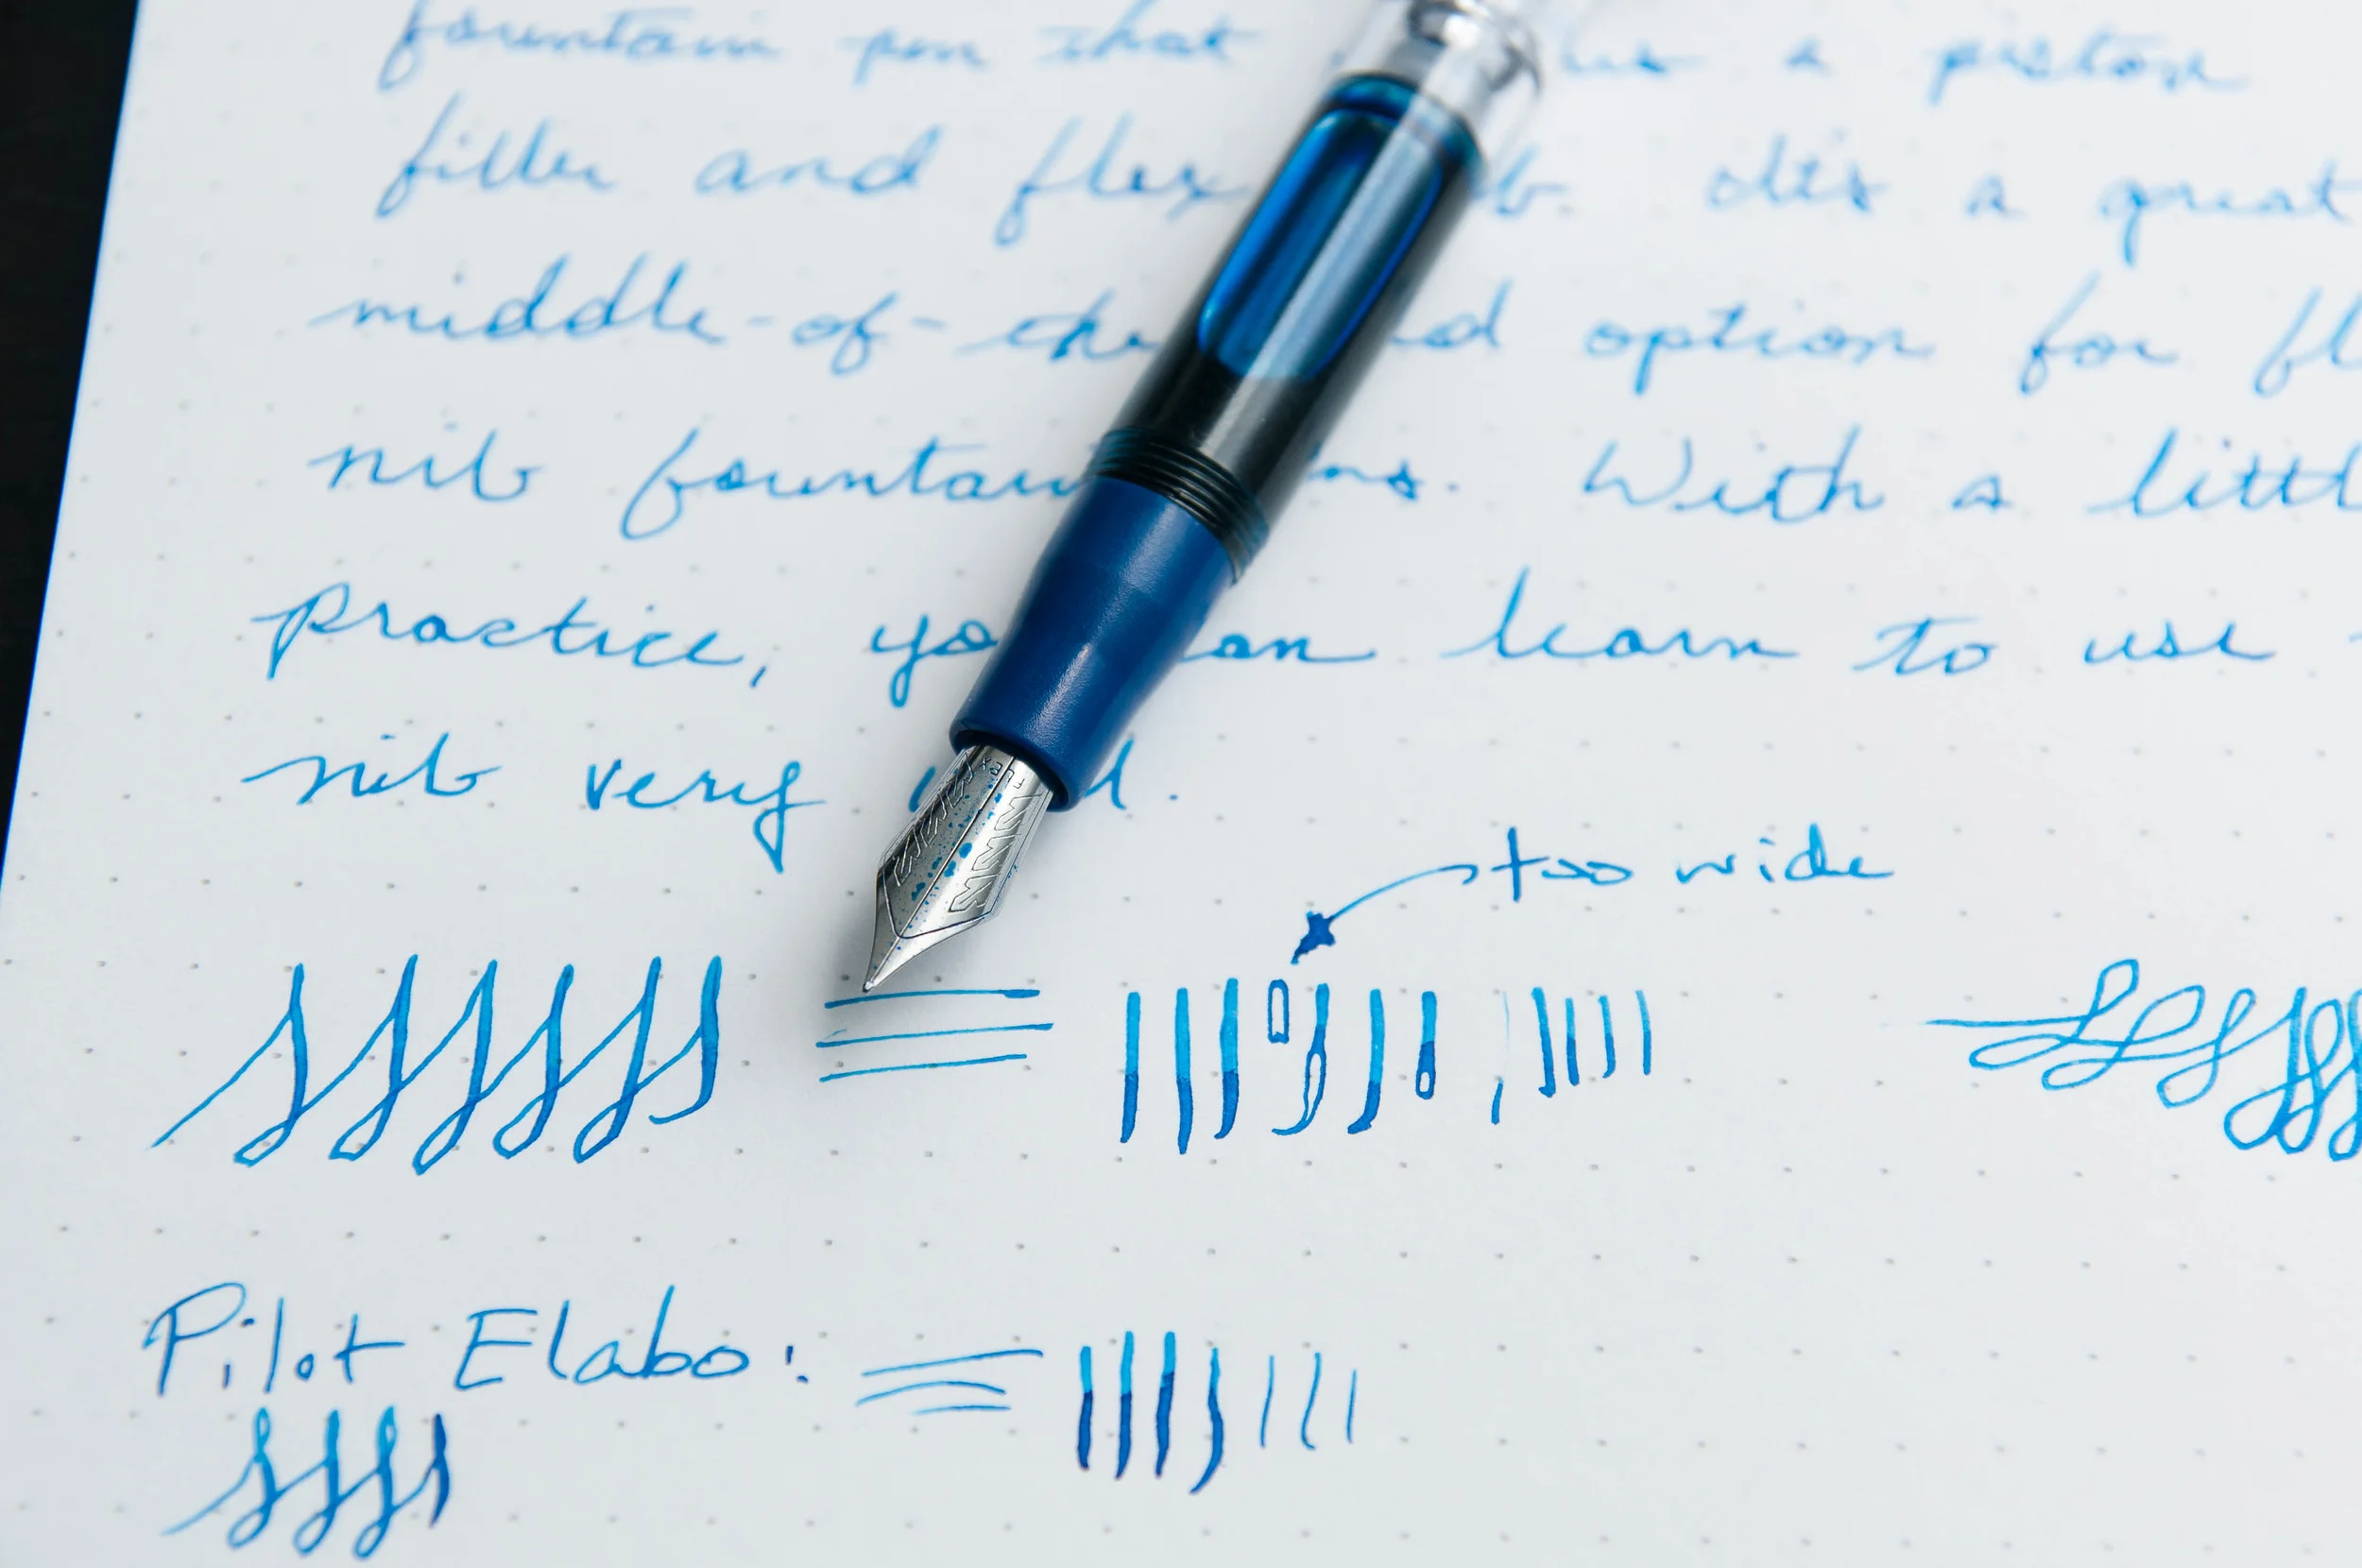 fountain pen that a piston
filler and flex It's a great
middle-of-the option for fl
nib fountain With a littl
practice, learn to use
nib very
too wide
Pilot Elabo: